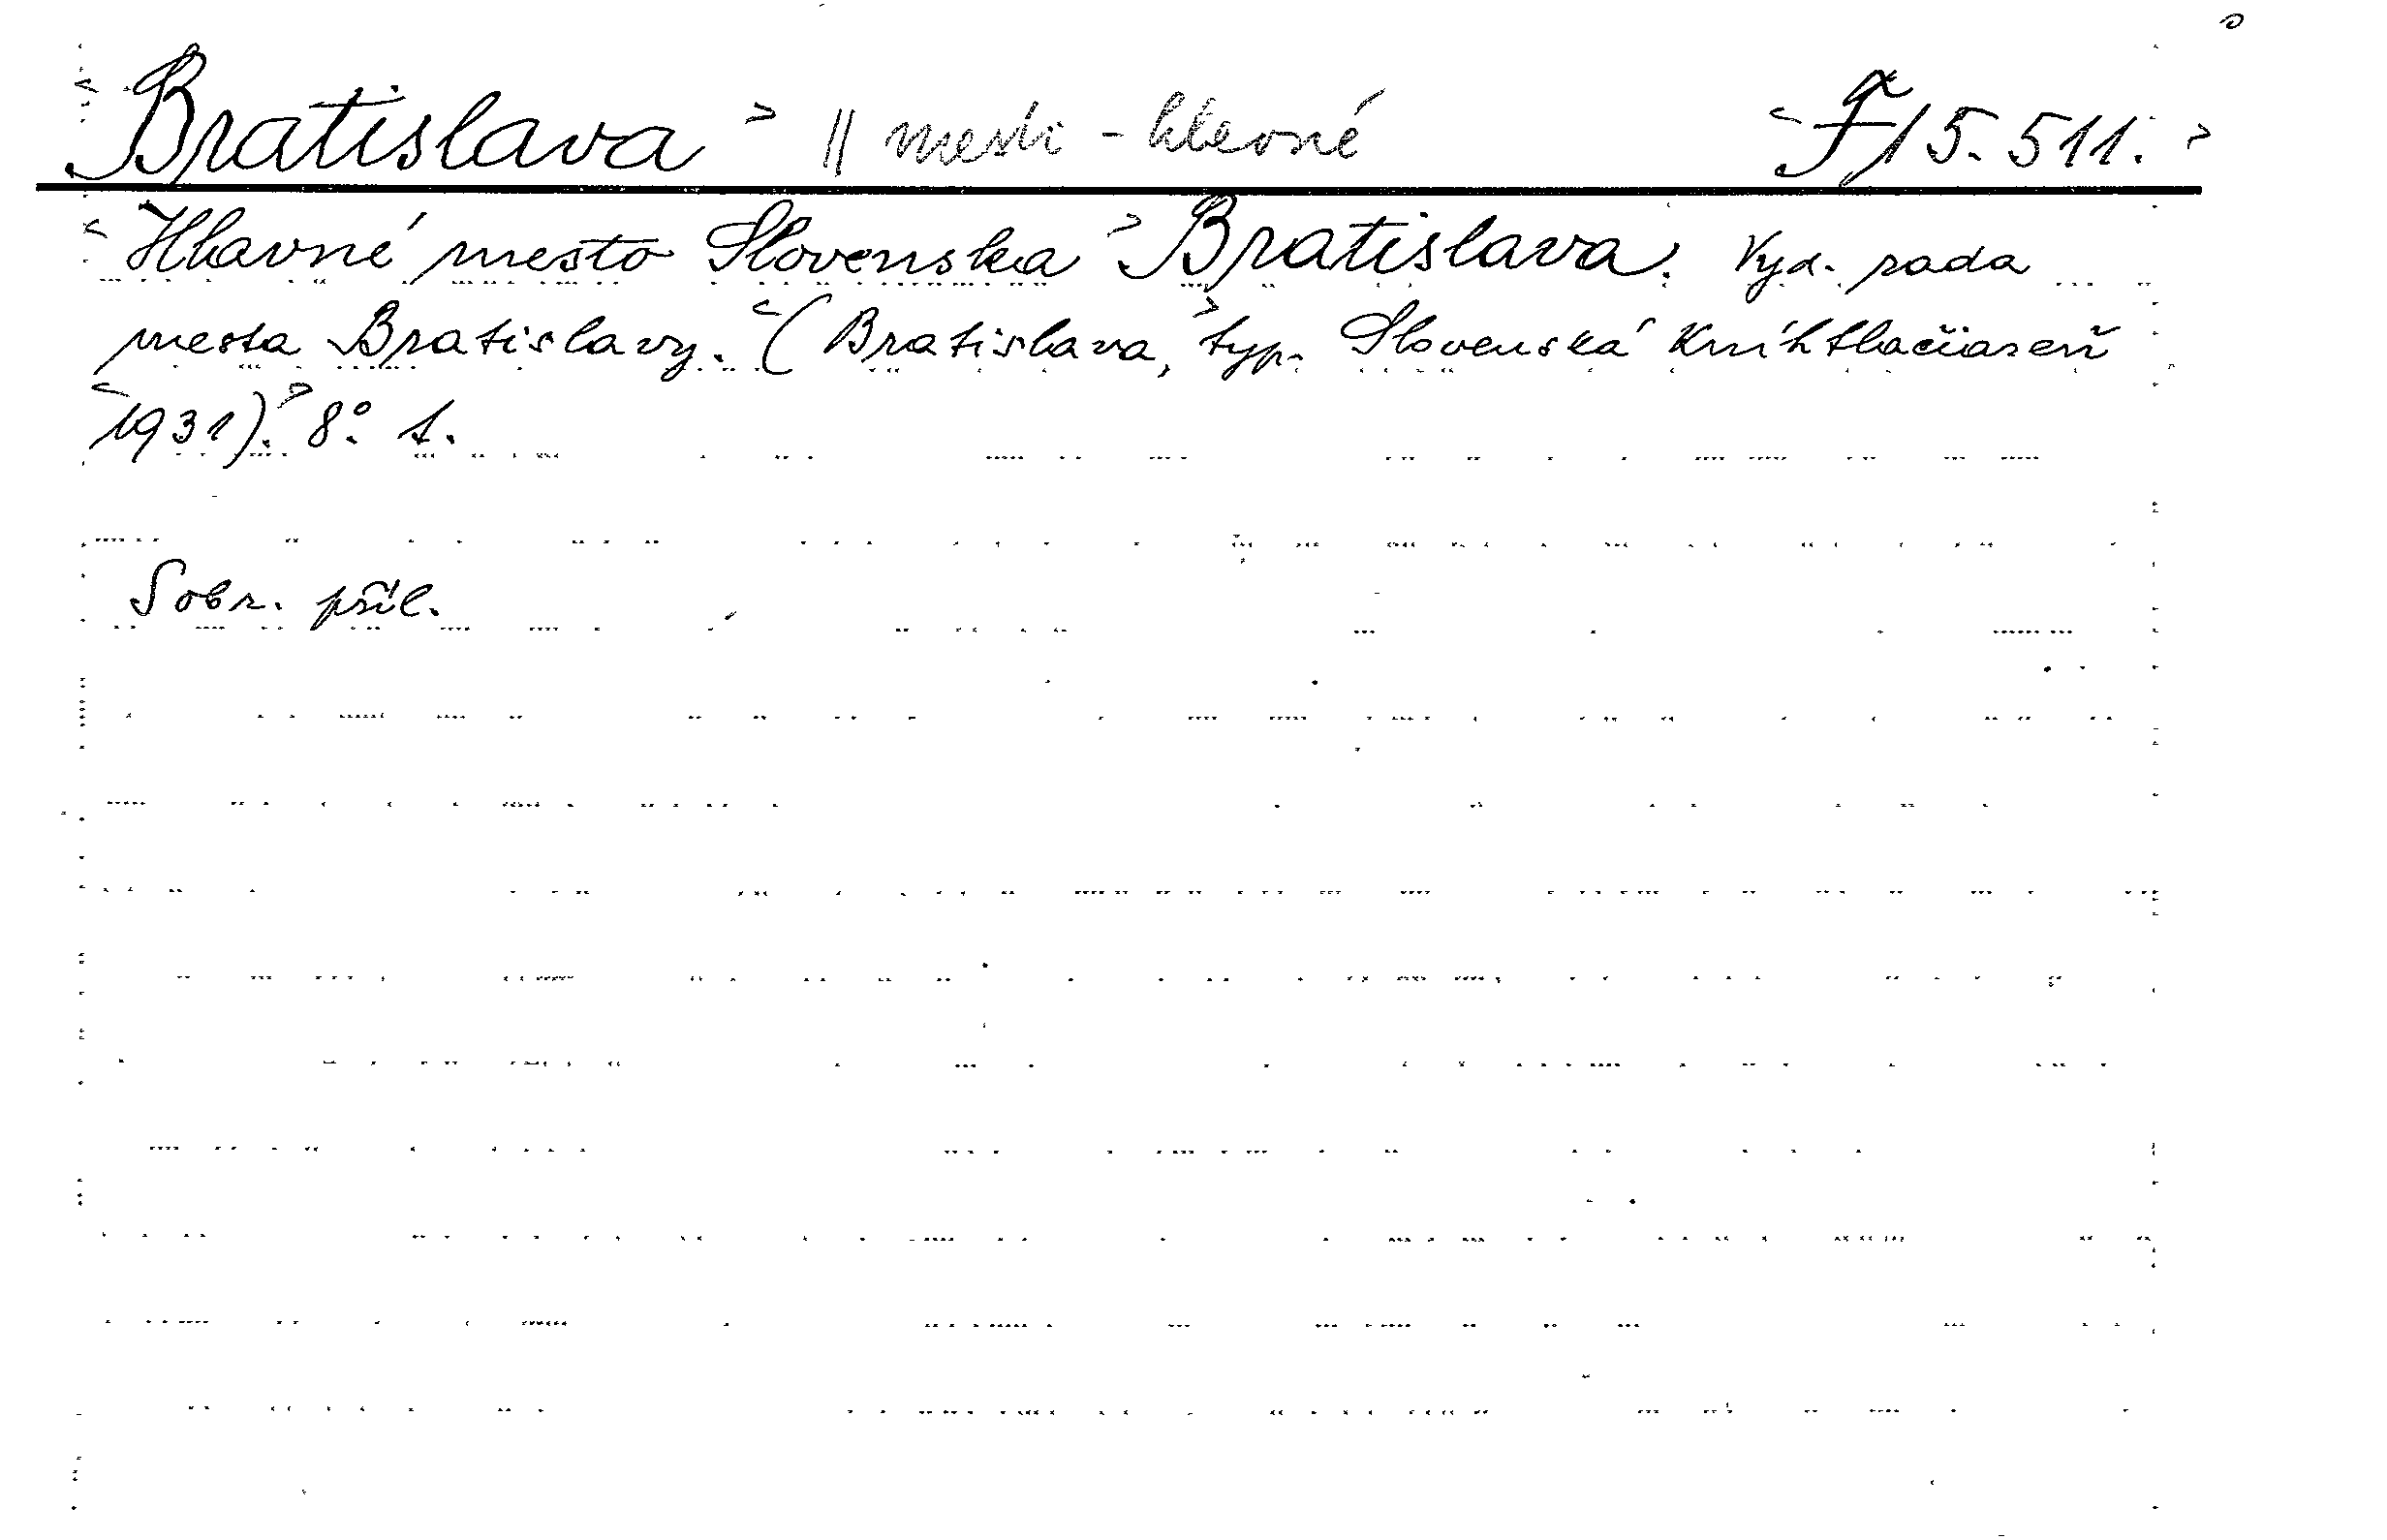 Bratislava || mesto - hlavné F 15.511.
Hlavné mesto Slovenska Bratislava. Vyd. rada
mesta Bratislavy. (Bratislava, typ. Slovenská Kníhtlačiareň
1931). 8°. 1.
S obr. příl.